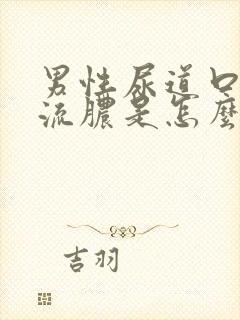 男性尿道口
流膿是怎麼
吉羽